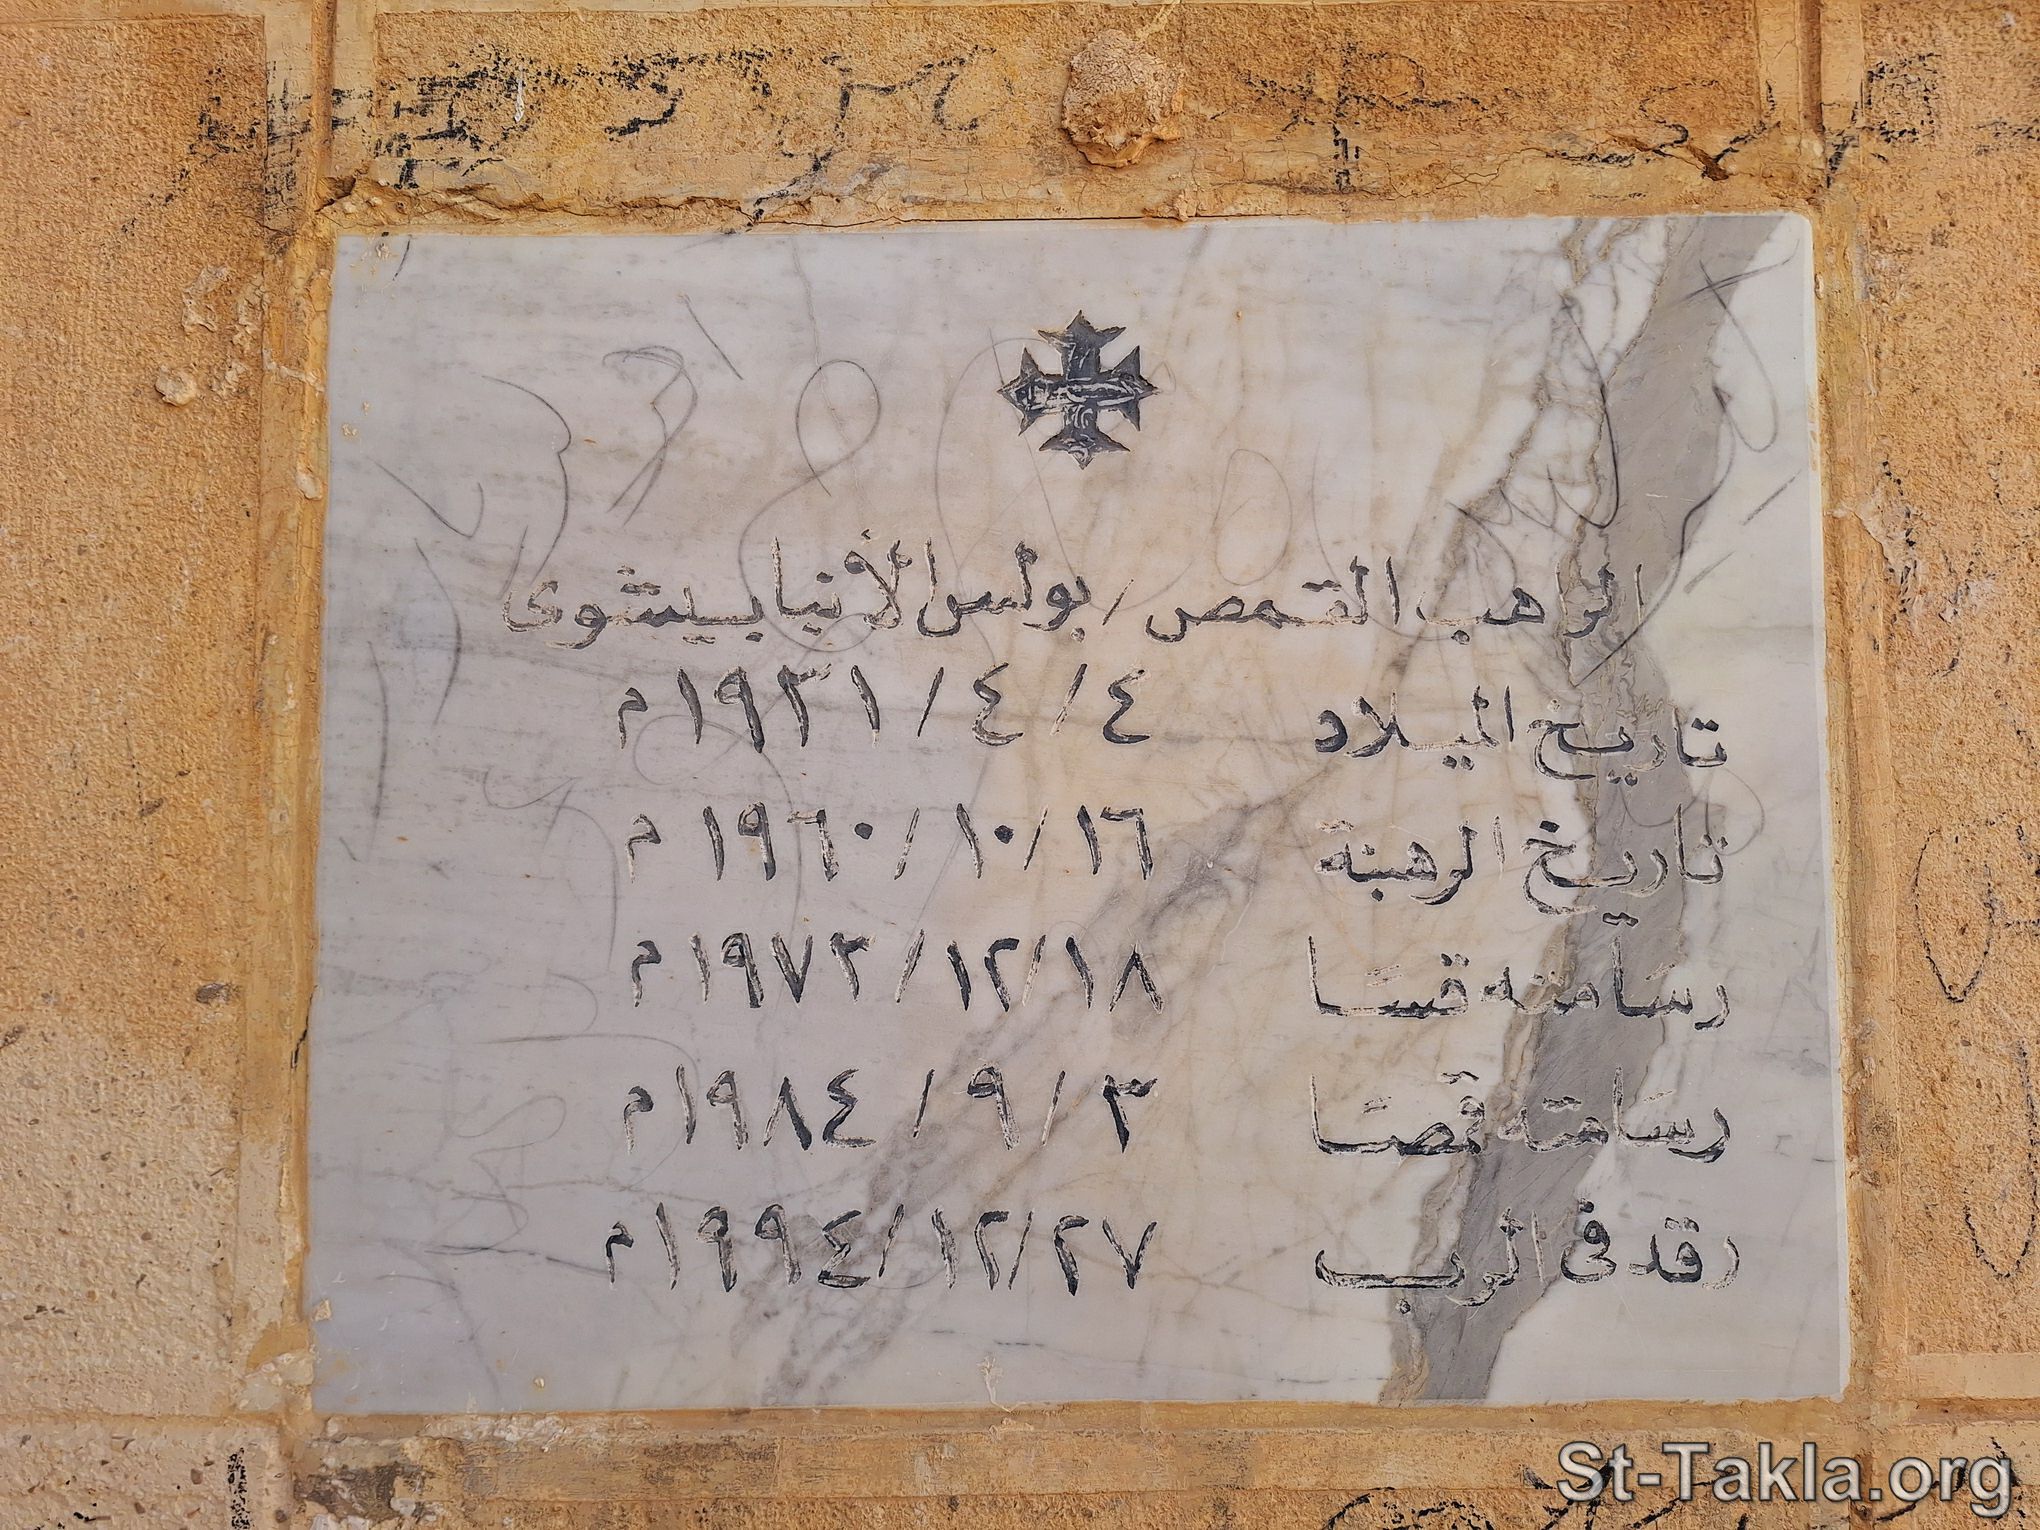 الراهب القمص / بولس الأنبا بيشوى
تاريخ الميلاد ٤ / ٤ / ١٩٣١ م
تاريخ الرهبنة ١٦ / ١٠ / ١٩٦٠ م
رسَامته قسًا ١٨ / ١٢ / ١٩٧٣ م
رسَامته قمصًا ٣ / ٩ / ١٩٨٤ م
رقد فى الرب ٢٧ / ١٢ / ١٩٩٤ م
St-Takla.org